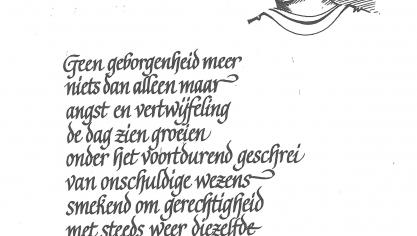 Geen geborgenheid meer
niets dan alleen maar
angst en vertwijfeling
de dag zien groeien
onder het voortdurend geschrei
van onschuldige wezens
smekend om gerechtigheid
met steeds weer diezelfde